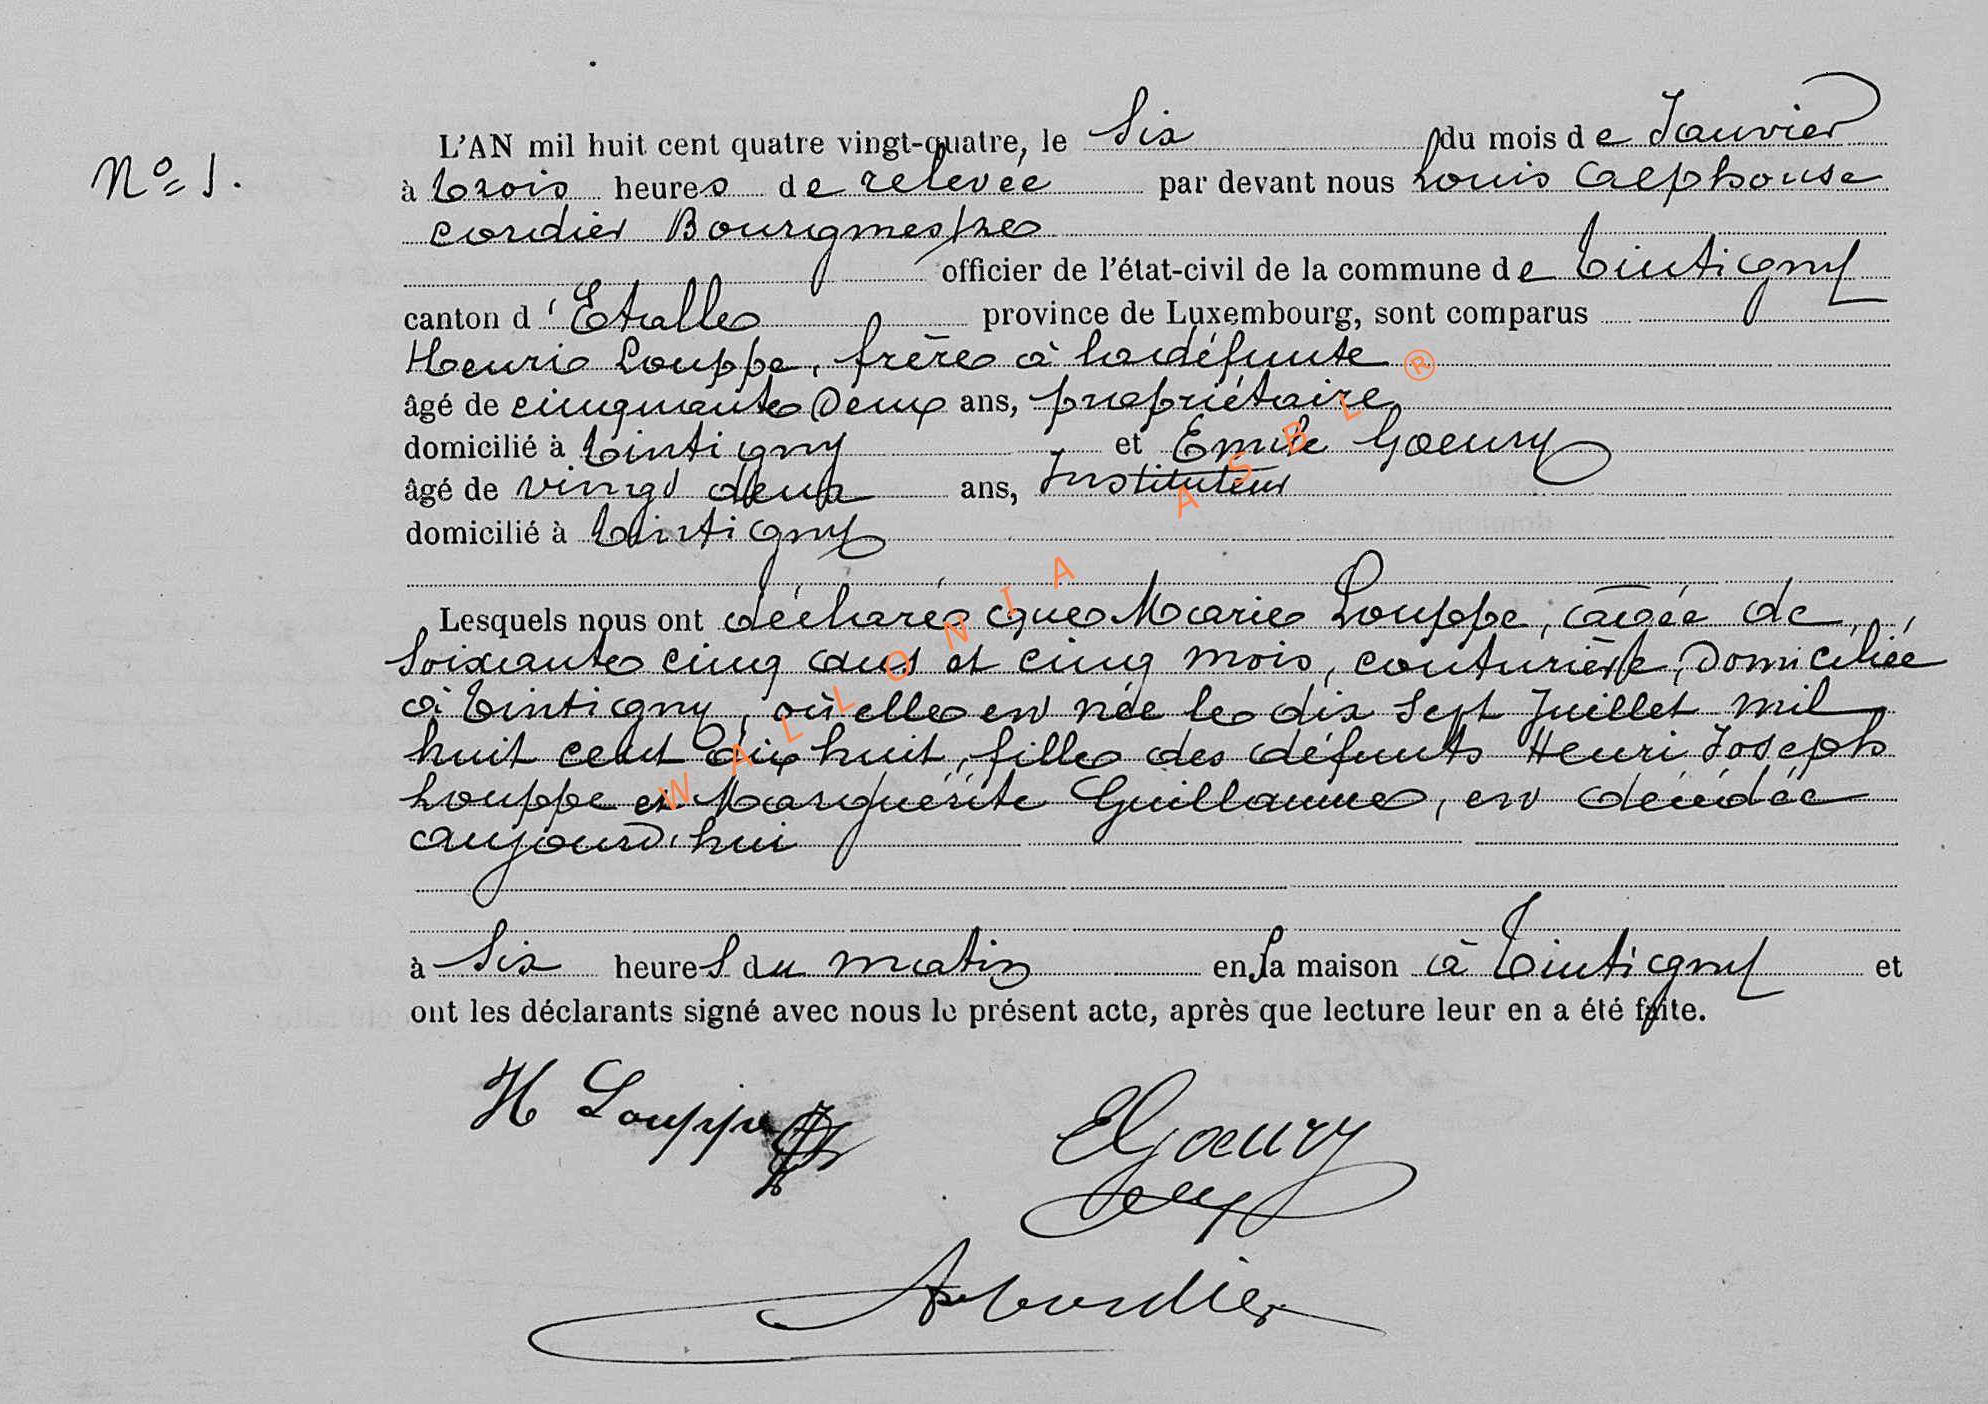 N° 1.
L'AN mil huit cent quatre vingt-quatre, le Six du mois de Janvier
à trois heures de relevée par devant nous Louis Alphonse
Cordier Bourgmestre
officier de l'état-civil de la commune de Tintigny
canton d'Etalle province de Luxembourg, sont comparus
Henri Louppe, frère à la défunte
âgé de cinquante Deux ans, propriétaire
domicilié à Tintigny et Emile Goeury
âgé de vingt deux ans, Instituteur
domicilié à Tintigny
Lesquels nous ont déclaré que Marie Louppe, âgée de
Soixante cinq ans et cinq mois, couturière, Domiciliée
à Tintigny, où elle est née le dix Sept Juillet mil
huit cent dix huit, fille des défunts Henri Joseph
Louppe et Marguérite Guillaume, est décédée
aujourd'hui
à Six heures du matin en sa maison à Tintigny et
ont les déclarants signé avec nous le présent acte, après que lecture leur en a été faite.
H Louppe
EGoeury
ACordier
WALLONIA ASBL ®